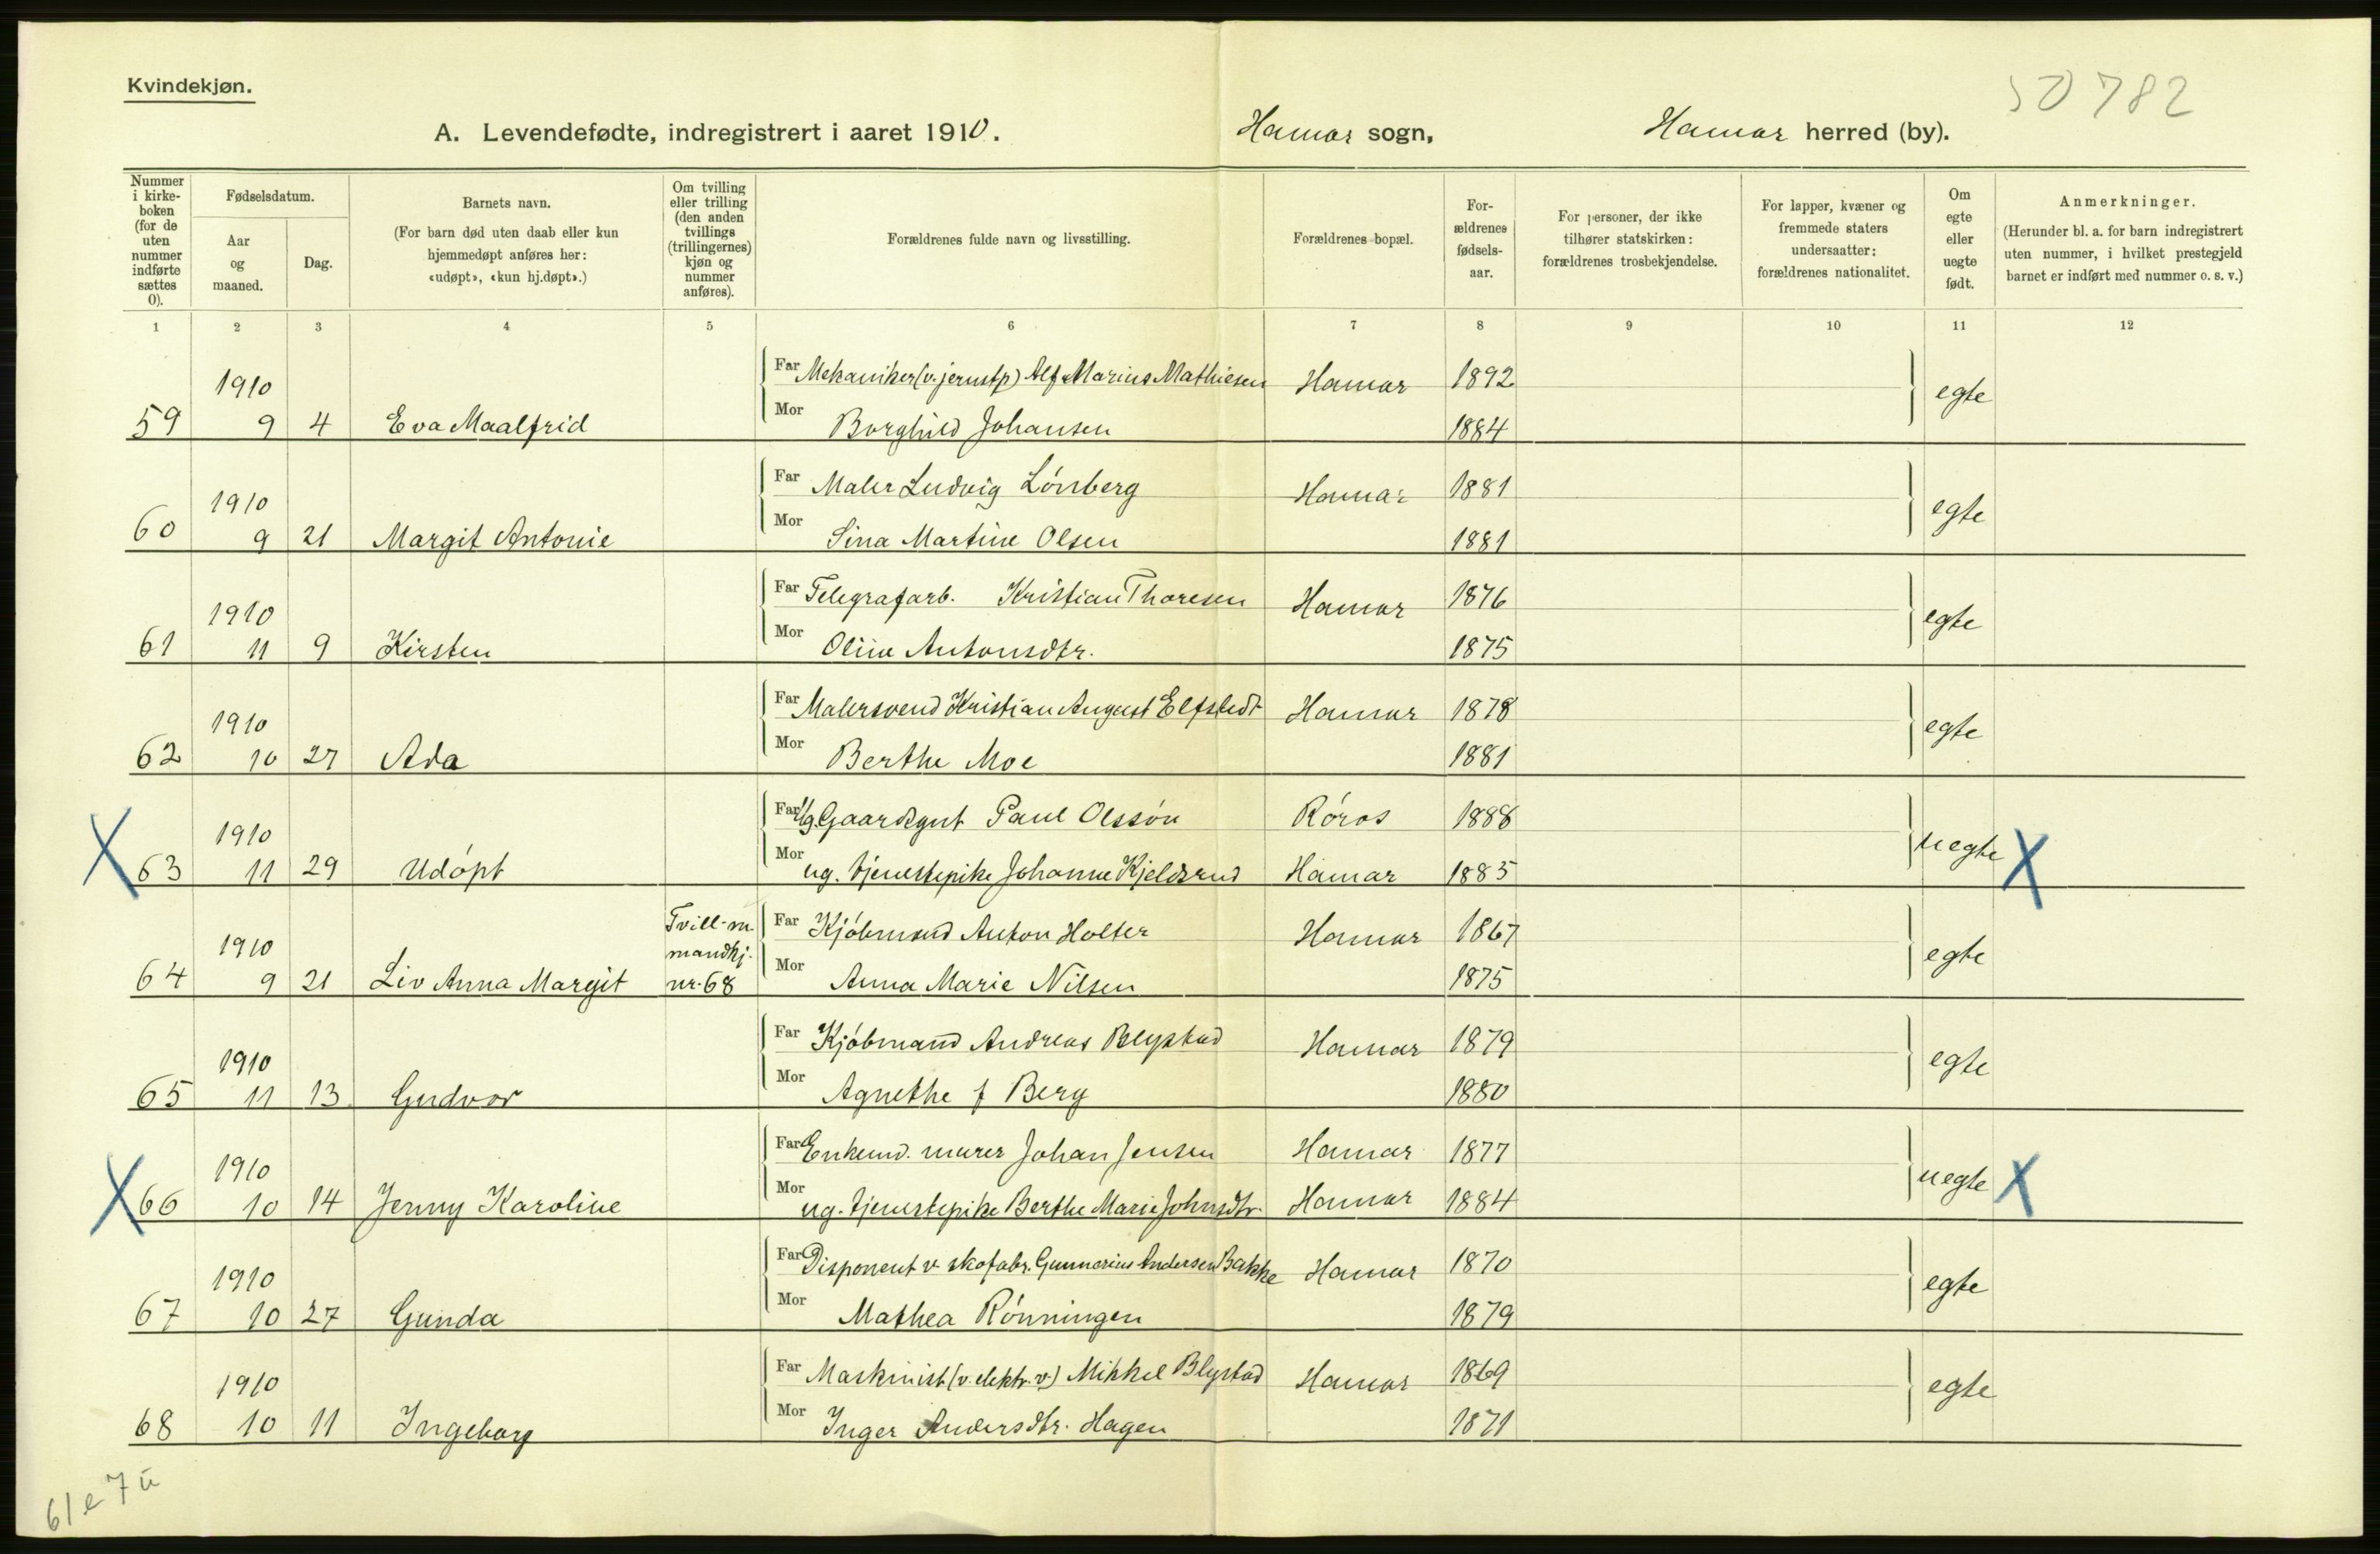 Kvindekjøn.
50782
A. Levendefødte, indregistrert i aaret 1910. Hamar sogn, Hamar herred (by).
Nummer i kirkeboken (for de uten nummer indførte sættes 0).
Fødselsdatum.
Aar og maaned.
Dag.
Barnets navn.
(For barn død uten daab eller kun hjemmedøpt anføres her: «udøpt», «kun hj.døpt».)
Om tvilling eller trilling (den anden tvillings (trillingernes) kjøn og nummer anføres).
Forældrenes fulde navn og livsstilling.
Forældrenes bopæl.
Forældrenes fødselsaar.
For personer, der ikke tilhører statskirken: forældrenes trosbekjendelse.
For lapper, kvæner og fremmede staters undersaatter: forældrenes nationalitet.
Om egte eller uegte født.
Anmerkninger.
(Herunder bl. a. for barn indregistrert uten nummer, i hvilket prestegjeld barnet er indført med nummer o. s. v.)
1 2 3 4 5 6 7 8 9 10 11 12
1910 Far Mekaniker (v. jernstp) Alf Marius Mathiesen Hamar 1892 egte
59 9 4 Eva Maalfrid Mor Borghild Johansen 1884
1910 Far Maler Ludvig Lønberg Hamar 1881 egte
60 9 21 Margit Antonie Mor Sina Martine Olsen 1881
1910 Far Telegrafarb. Kristian Thoresen Hamar 1876 egte
61 11 9 Kirsten Mor Oline Antonsdtr. 1875
1910 Far Malersvend Kristian August Elfstedt Hamar 1878 egte
62 10 27 Ada Mor Berthe Moe 1881
1910 Far Ug. Gaardgut Paul Olssøn Røros 1888 uegte X
X 63 11 29 Udøpt Mor ug. tjenestepike Johanne Kjeldsrud Hamar 1885
1910 Tvill. m. mandkj. nr. 68 Far Kjøbmand Anton Holter Hamar 1867 egte
64 9 21 Liv Anna Margit Mor Anna Marie Nilsen 1875
1910 Far Kjøbmand Andreas Blystad Hamar 1879 egte
65 11 13 Gudvor Mor Agnethe f Berg 1880
1910 Far Enkemd. murer Johan Jensen Hamar 1877 uegte X
X 66 10 14 Jenny Karoline Mor ug. tjenestepike Berthe Marie Johnsdtr. Hamar 1884
1910 Far Disponent v skofabr. Gunnarius Andersen Bakke Hamar 1870 egte
67 10 27 Gunda Mor Mathea Rønningen 1879
1910 Far Maskinist (v. elektr. v.) Mikkel Blystad Hamar 1869 egte
68 10 11 Ingeborg Mor Inger Andersdtr. Hagen 1871
61 e 7 ü